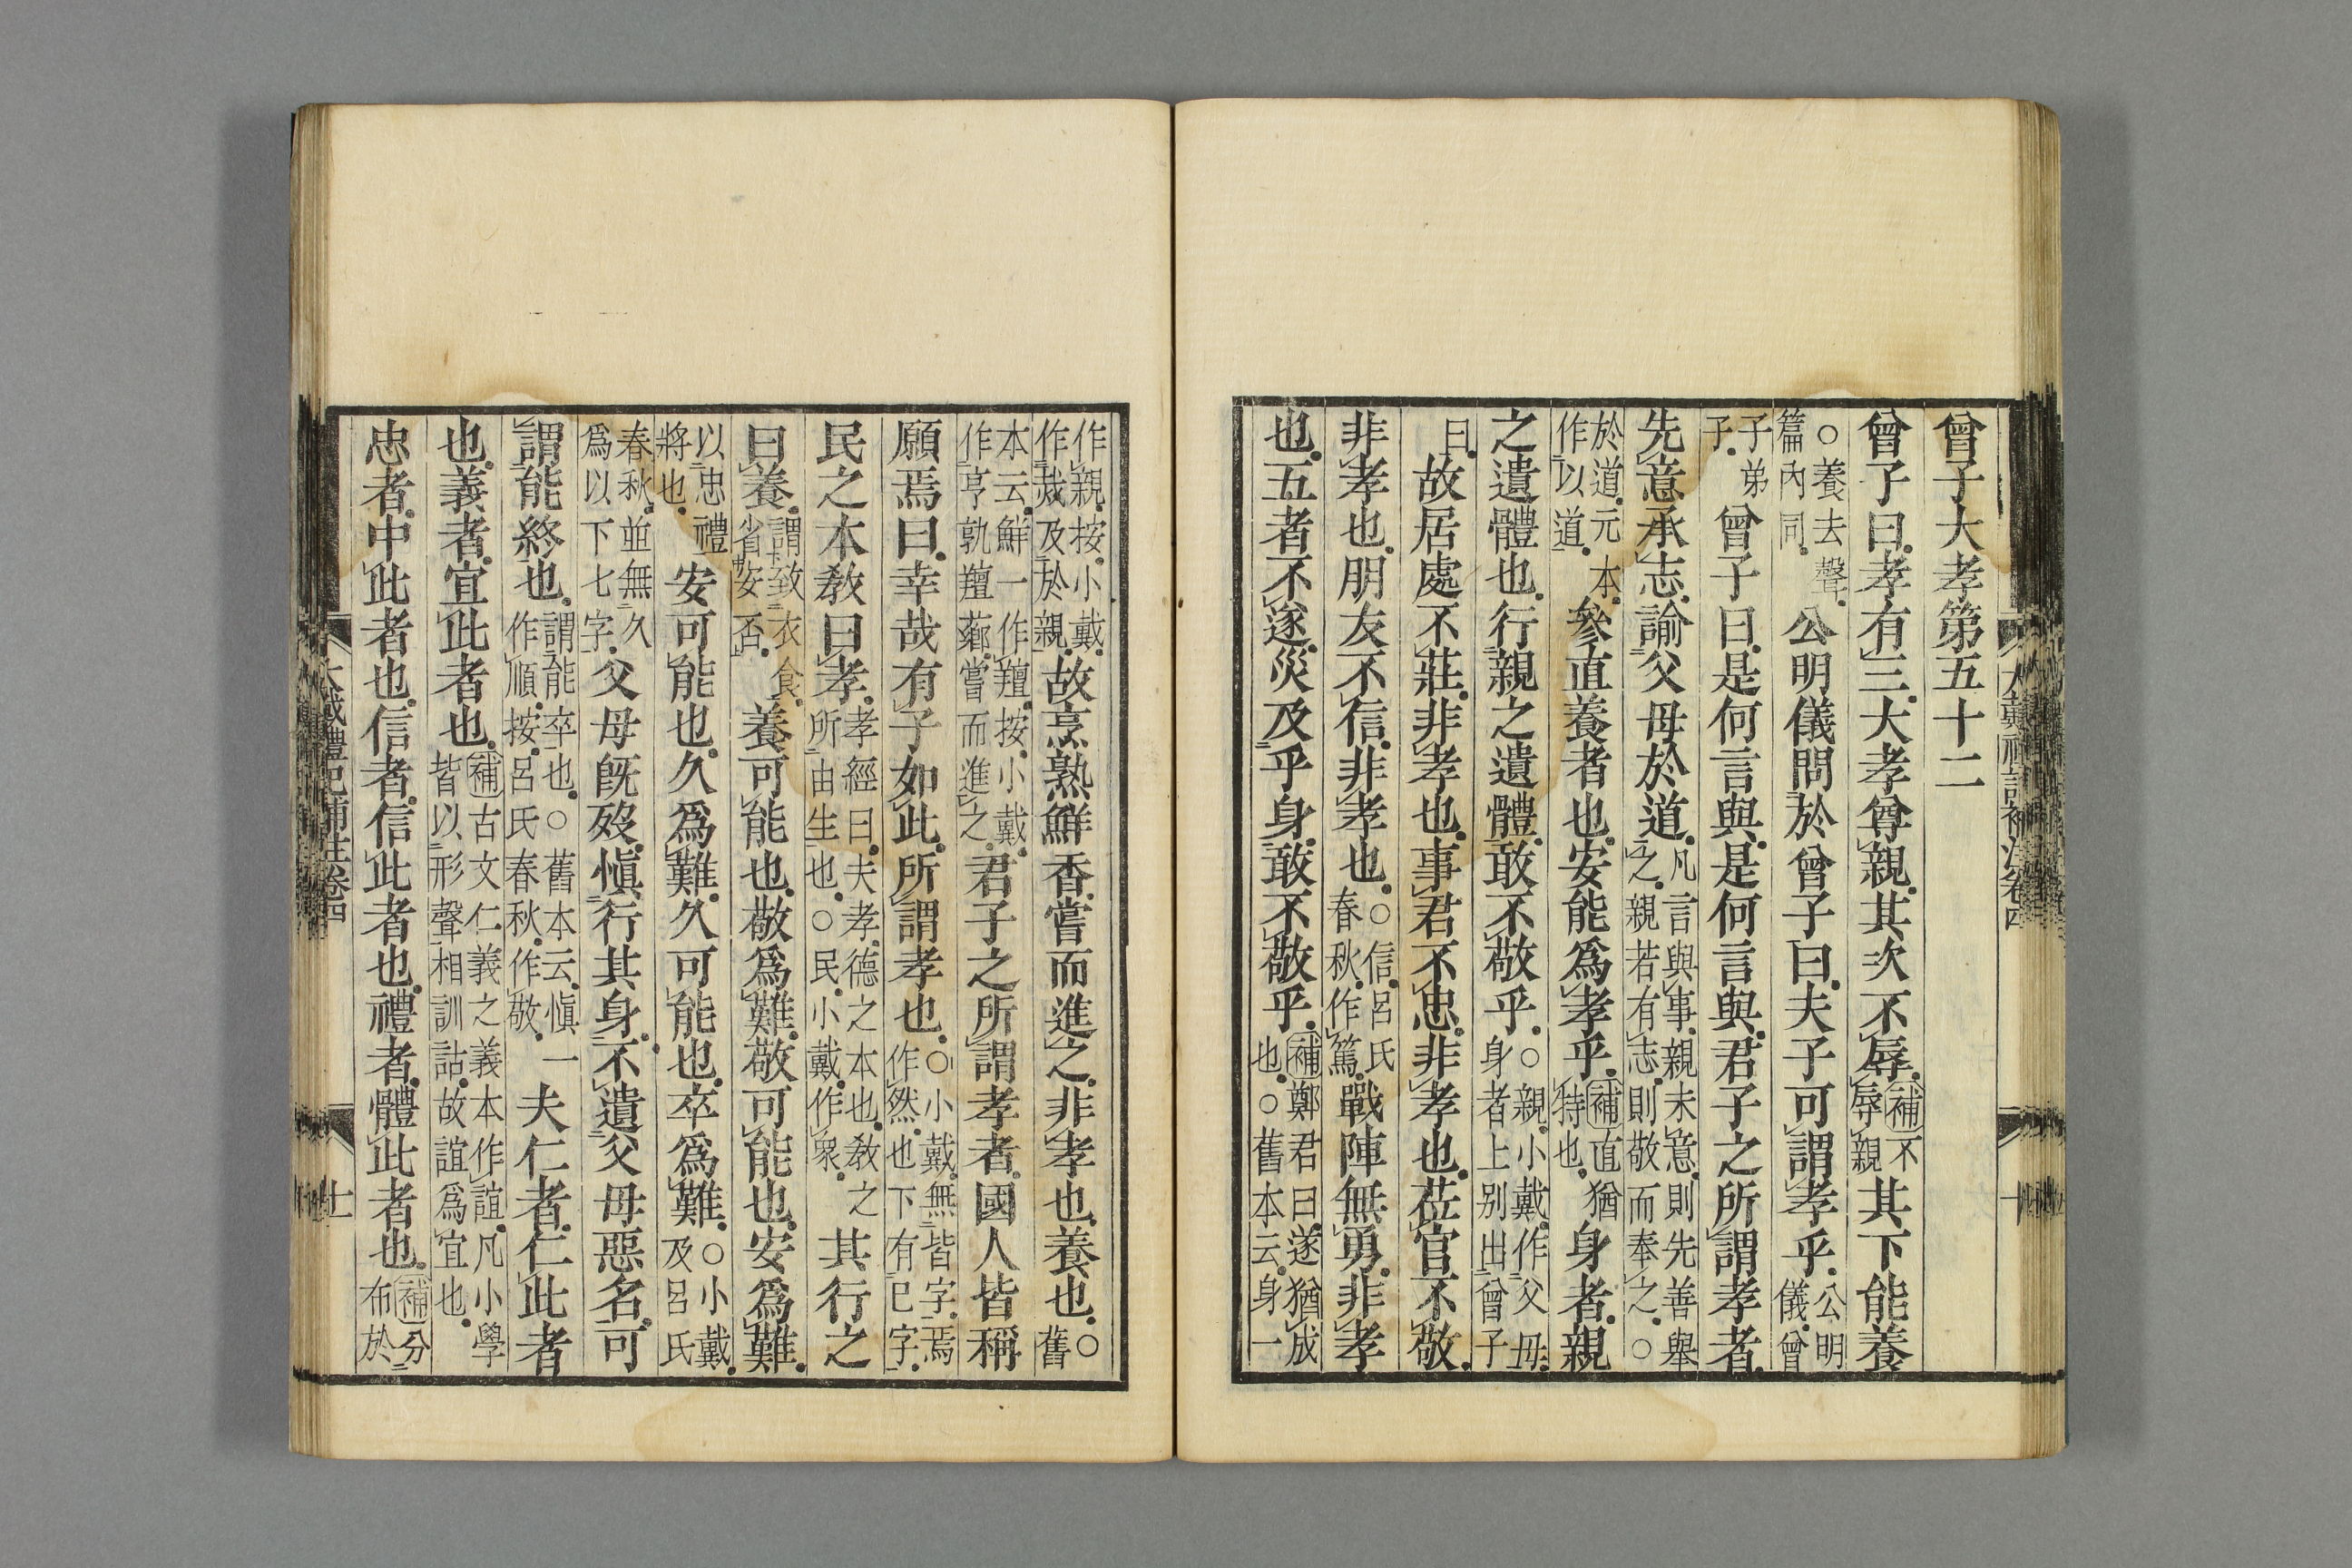 曾子大孝第五十二
曾子曰。孝有三。大孝尊親。其次不辱。補不辱親其下能養
○養去聲。篇內同。公明儀問於曾子曰。夫子可謂孝乎。公明儀。曾
子弟子。曾子曰。是何言與。是何言與。君子之所謂孝者。
先意承志。諭父母於道。凡言與事。親未意。則先善舉之。親若有志。則敬而奉之。○
於道。元本。作以道。參直養者也。安能爲孝乎。補直猶特也。身者。親
之遺體也。行親之遺體。敢不敬乎。○親。小戴。作父母。身者上別出曾子
曰。故居處不莊。非孝也。事君不忠。非孝也。莅官不敬。
非孝也。朋友不信。非孝也。○信。呂氏春秋。作篤。戰陣無勇。非孝
也。五者不遂。災及乎身。敢不敬乎。補鄭君曰。遂猶成也。○舊本云。身一
作親。按。小戴。作烖及於親。故烹熟鮮香。嘗而進之。非孝也。養也。○舊
本云。鮮一作羶。按。小戴。作亨孰羶薌。嘗而進之。君子之所謂孝者。國人皆稱
願焉曰。幸哉有子如此。所謂孝也。○小戴。無皆字。焉作然。也下有已字。
民之本敎曰孝。孝經曰。夫孝。德之本也。敎之所由生也。○民。小戴。作衆。其行之
曰養。謂致衣食。省安否。養可能也。敬爲難。敬可能也。安爲難。
以忠禮將也。安可能也。久爲難。久可能也。卒爲難。○小戴。及呂氏
春秋。並無久爲以下七字。父母旣歿。愼行其身。不遺父母惡名。可
謂能終也。謂能卒也。○舊本云。愼一作順。按。呂氏春秋。作敬。夫仁者。仁此者
也。義者。宜此者也。補古文仁義之義本作誼。凡小學皆以形聲相訓詁。故誼爲宜也。
忠者。中此者也。信者。信此者也。禮者。體此者也。補分布於
大戴禮記補注卷四
十一